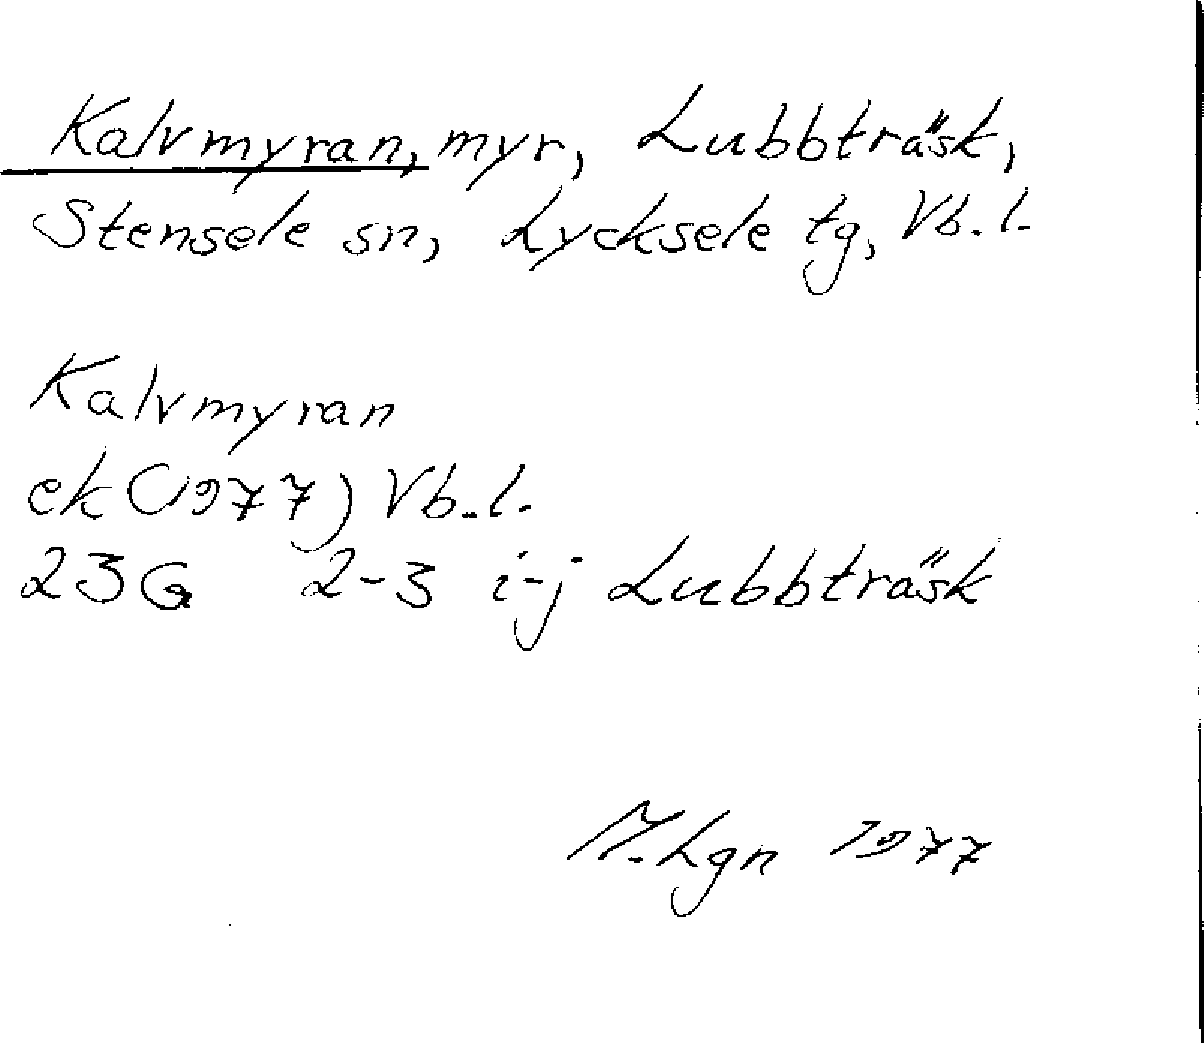 Kalvmyran, myr, Lubbträsk,
Stensele sn, Lycksele tg, Vb. l.
Kalvmyran
ek (1977) Vb. l.
23G 2-3 i-j Lubbträsk
M. Lgn 1977